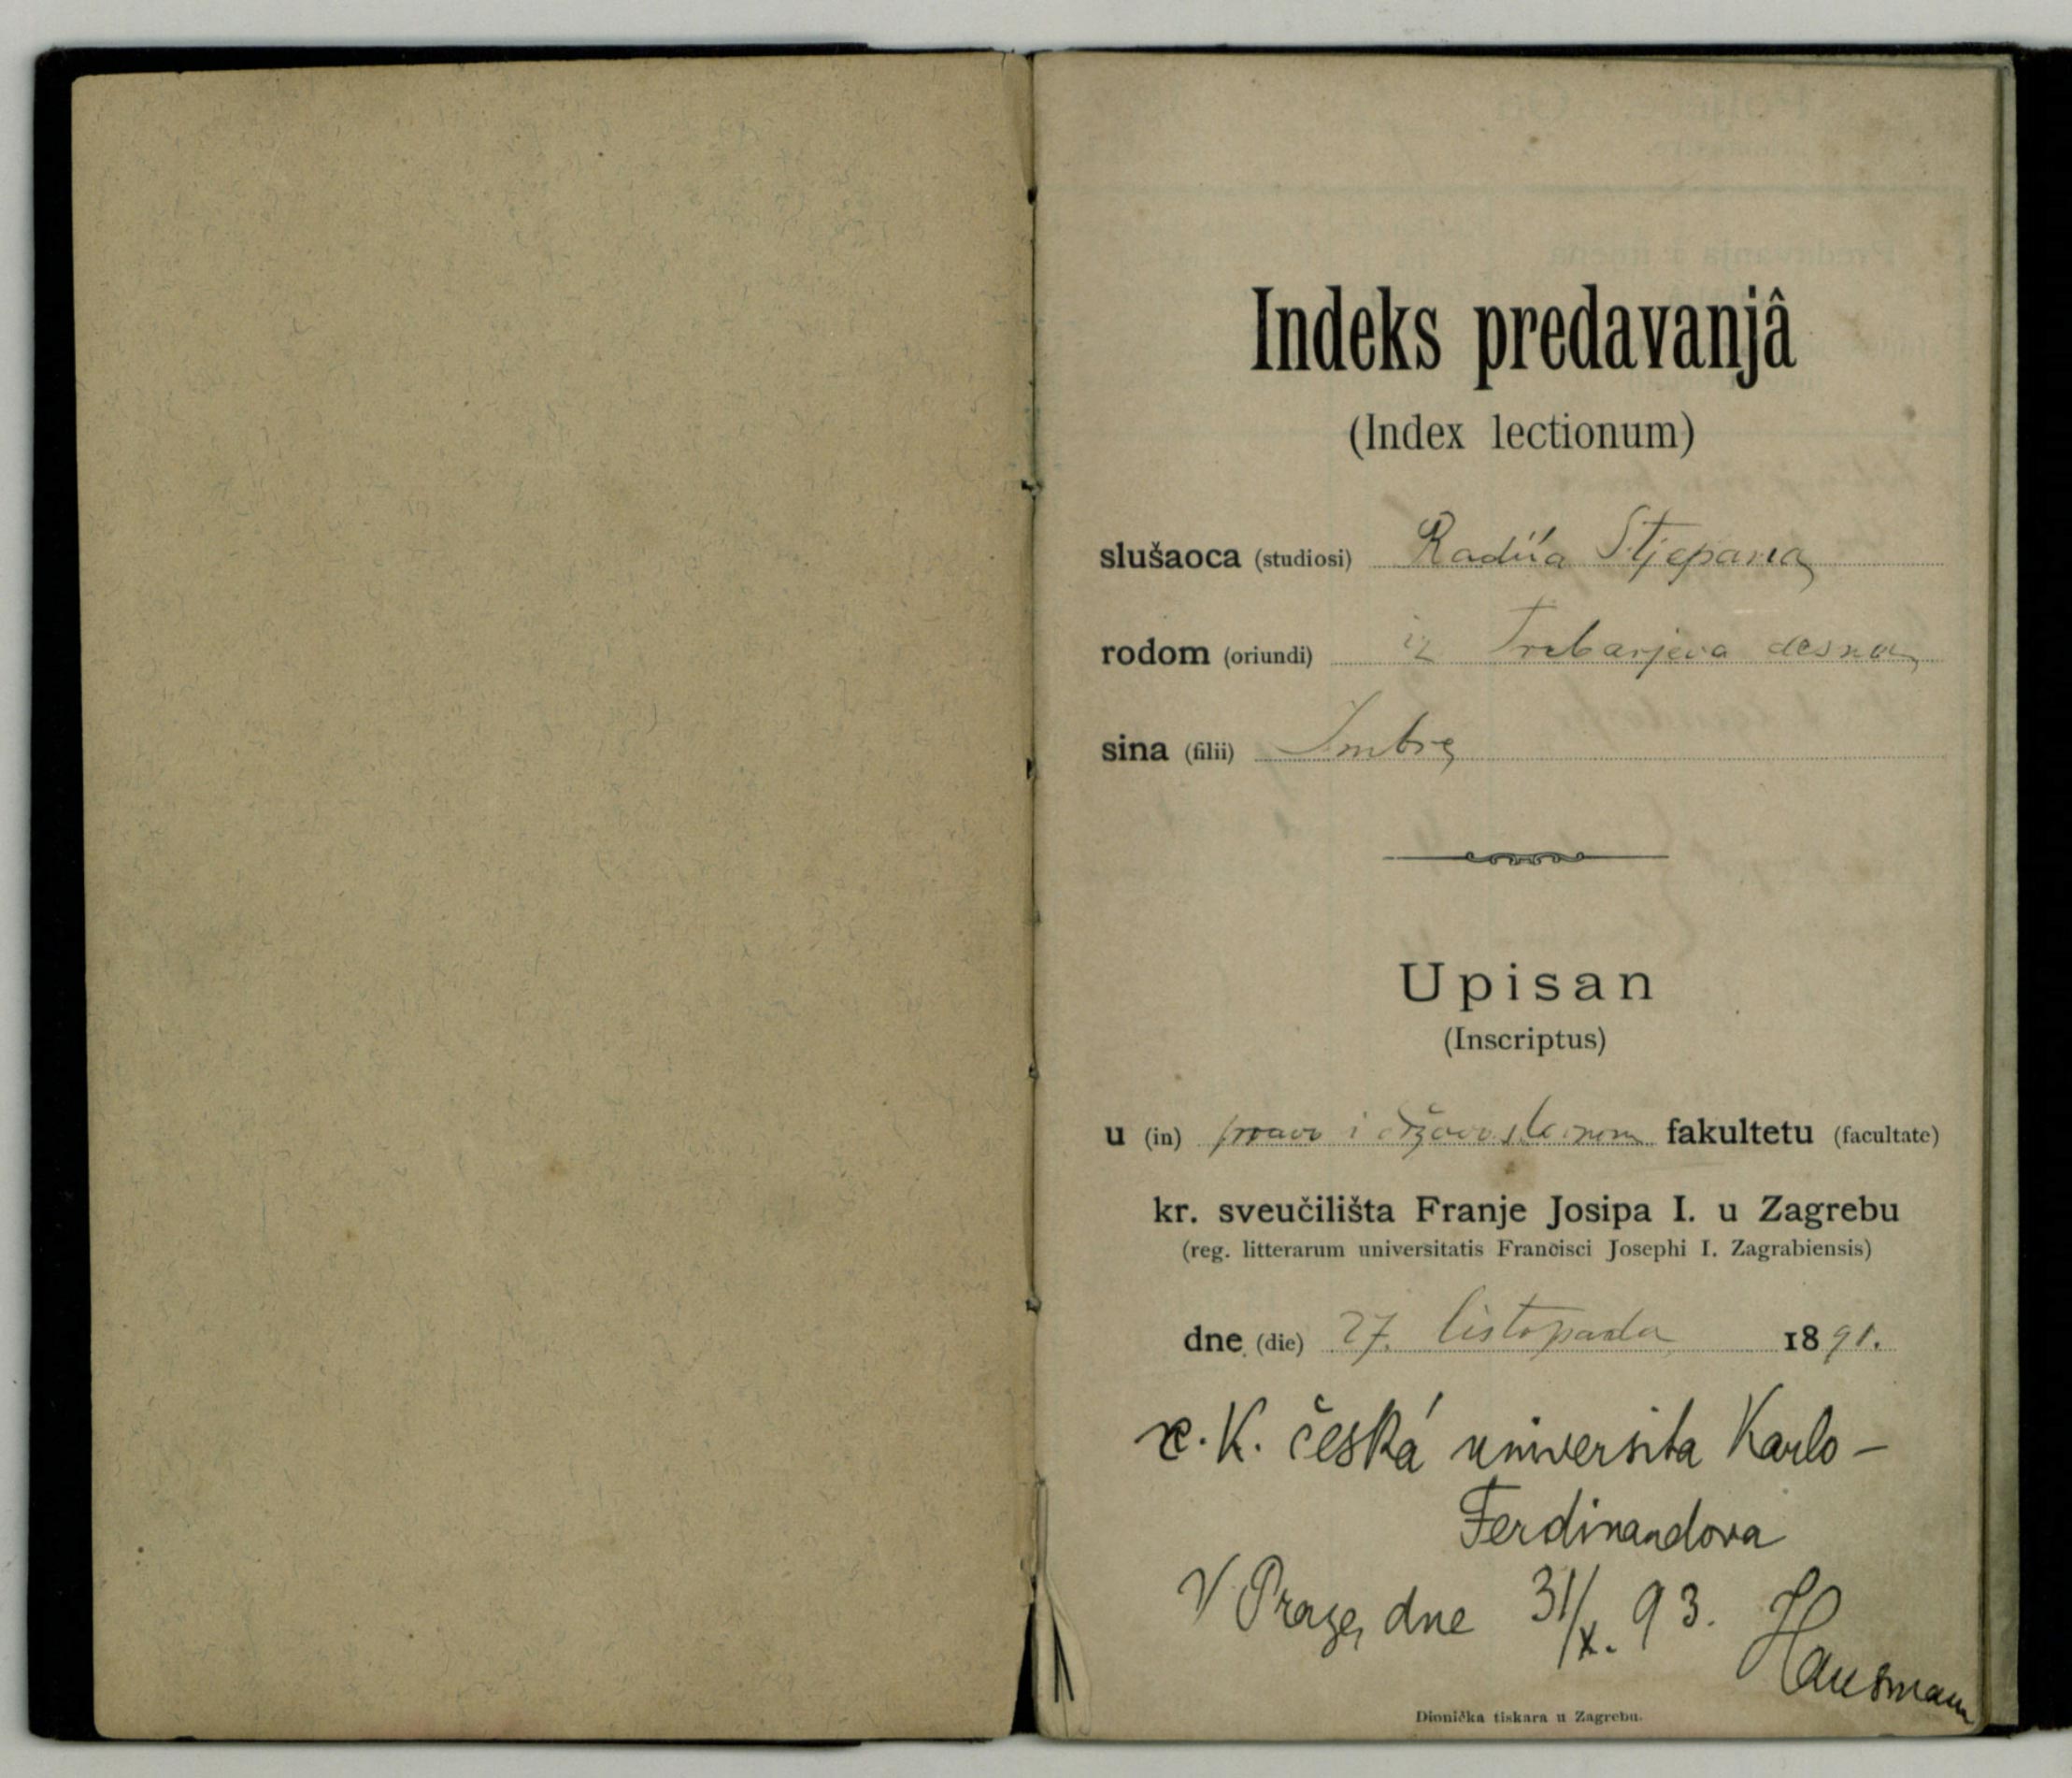 Indeks predavanjâ
(Index lectionum)
slušaoca (studiosi) Radića Stjepana
rodom (oriundi) iz Trebarjeva desna
sina (filii) Imbre
Upisan
(Inscriptus)
u (in) pravo i državoslovnom fakultetu (facultate)
kr. sveučilišta Franje Josipa I. u Zagrebu
(reg. litterarum universitatis Francisci Josephi I. Zagrabiensis)
dne (die) 27. listopada 1891.
c. K. česká universita Karlo-
Ferdinandova
V Praze, dne 31/X. 93. Hausmann
Dionička tiskara u Zagrebu.